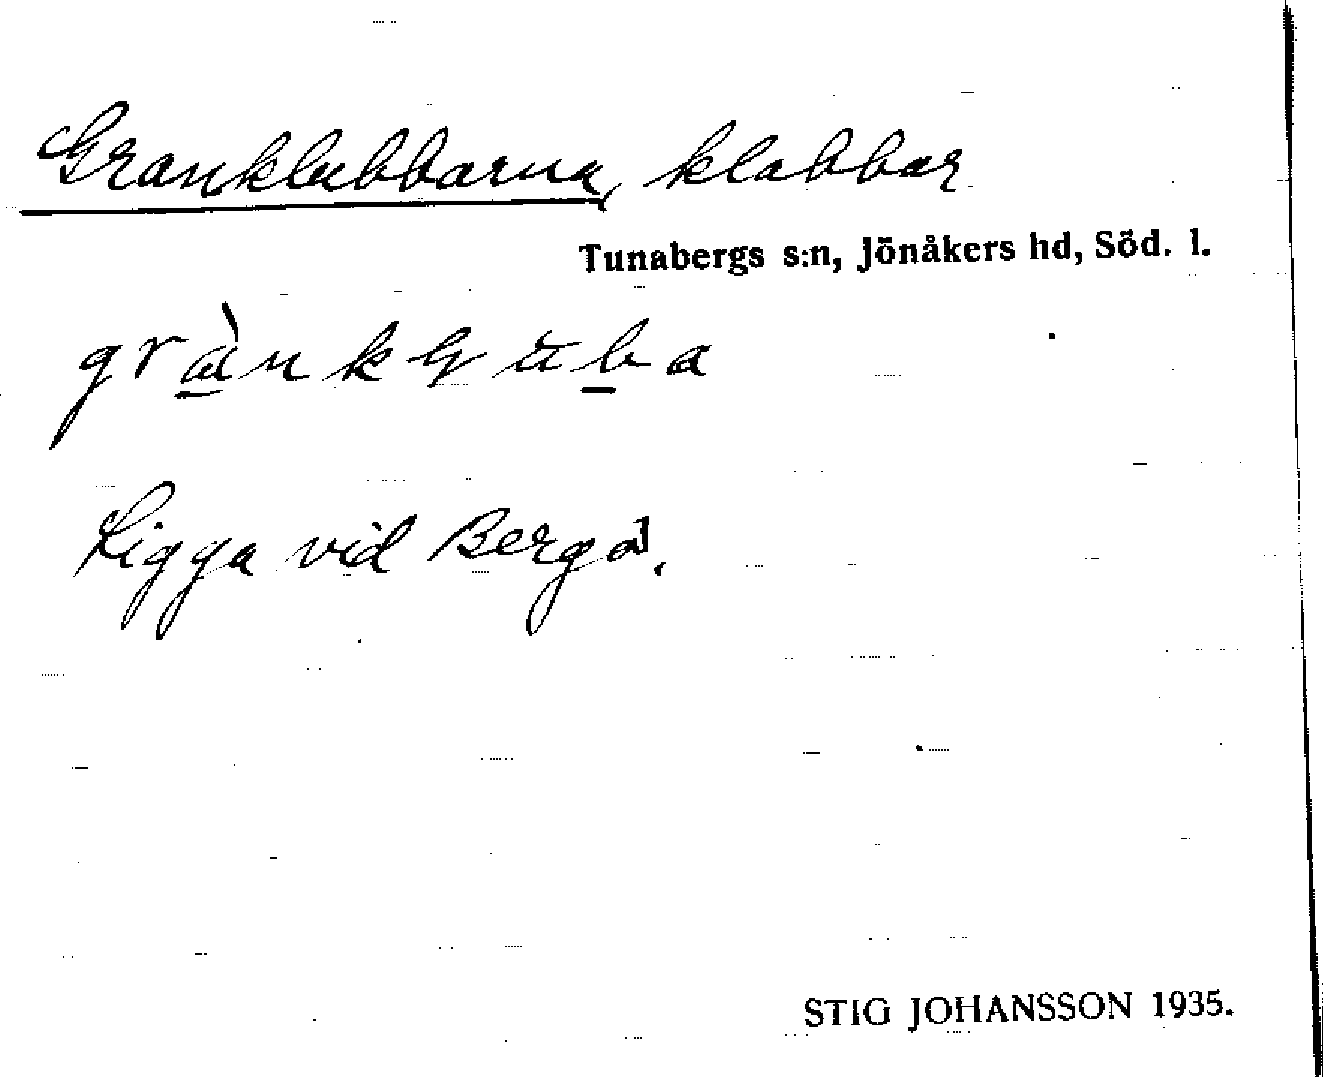 Granklubbarna, klabbar
Tunabergs s:n, Jönåkers hd, Söd. l.
Ligga vid Bergö.
STIG JOHANSSON 1935.